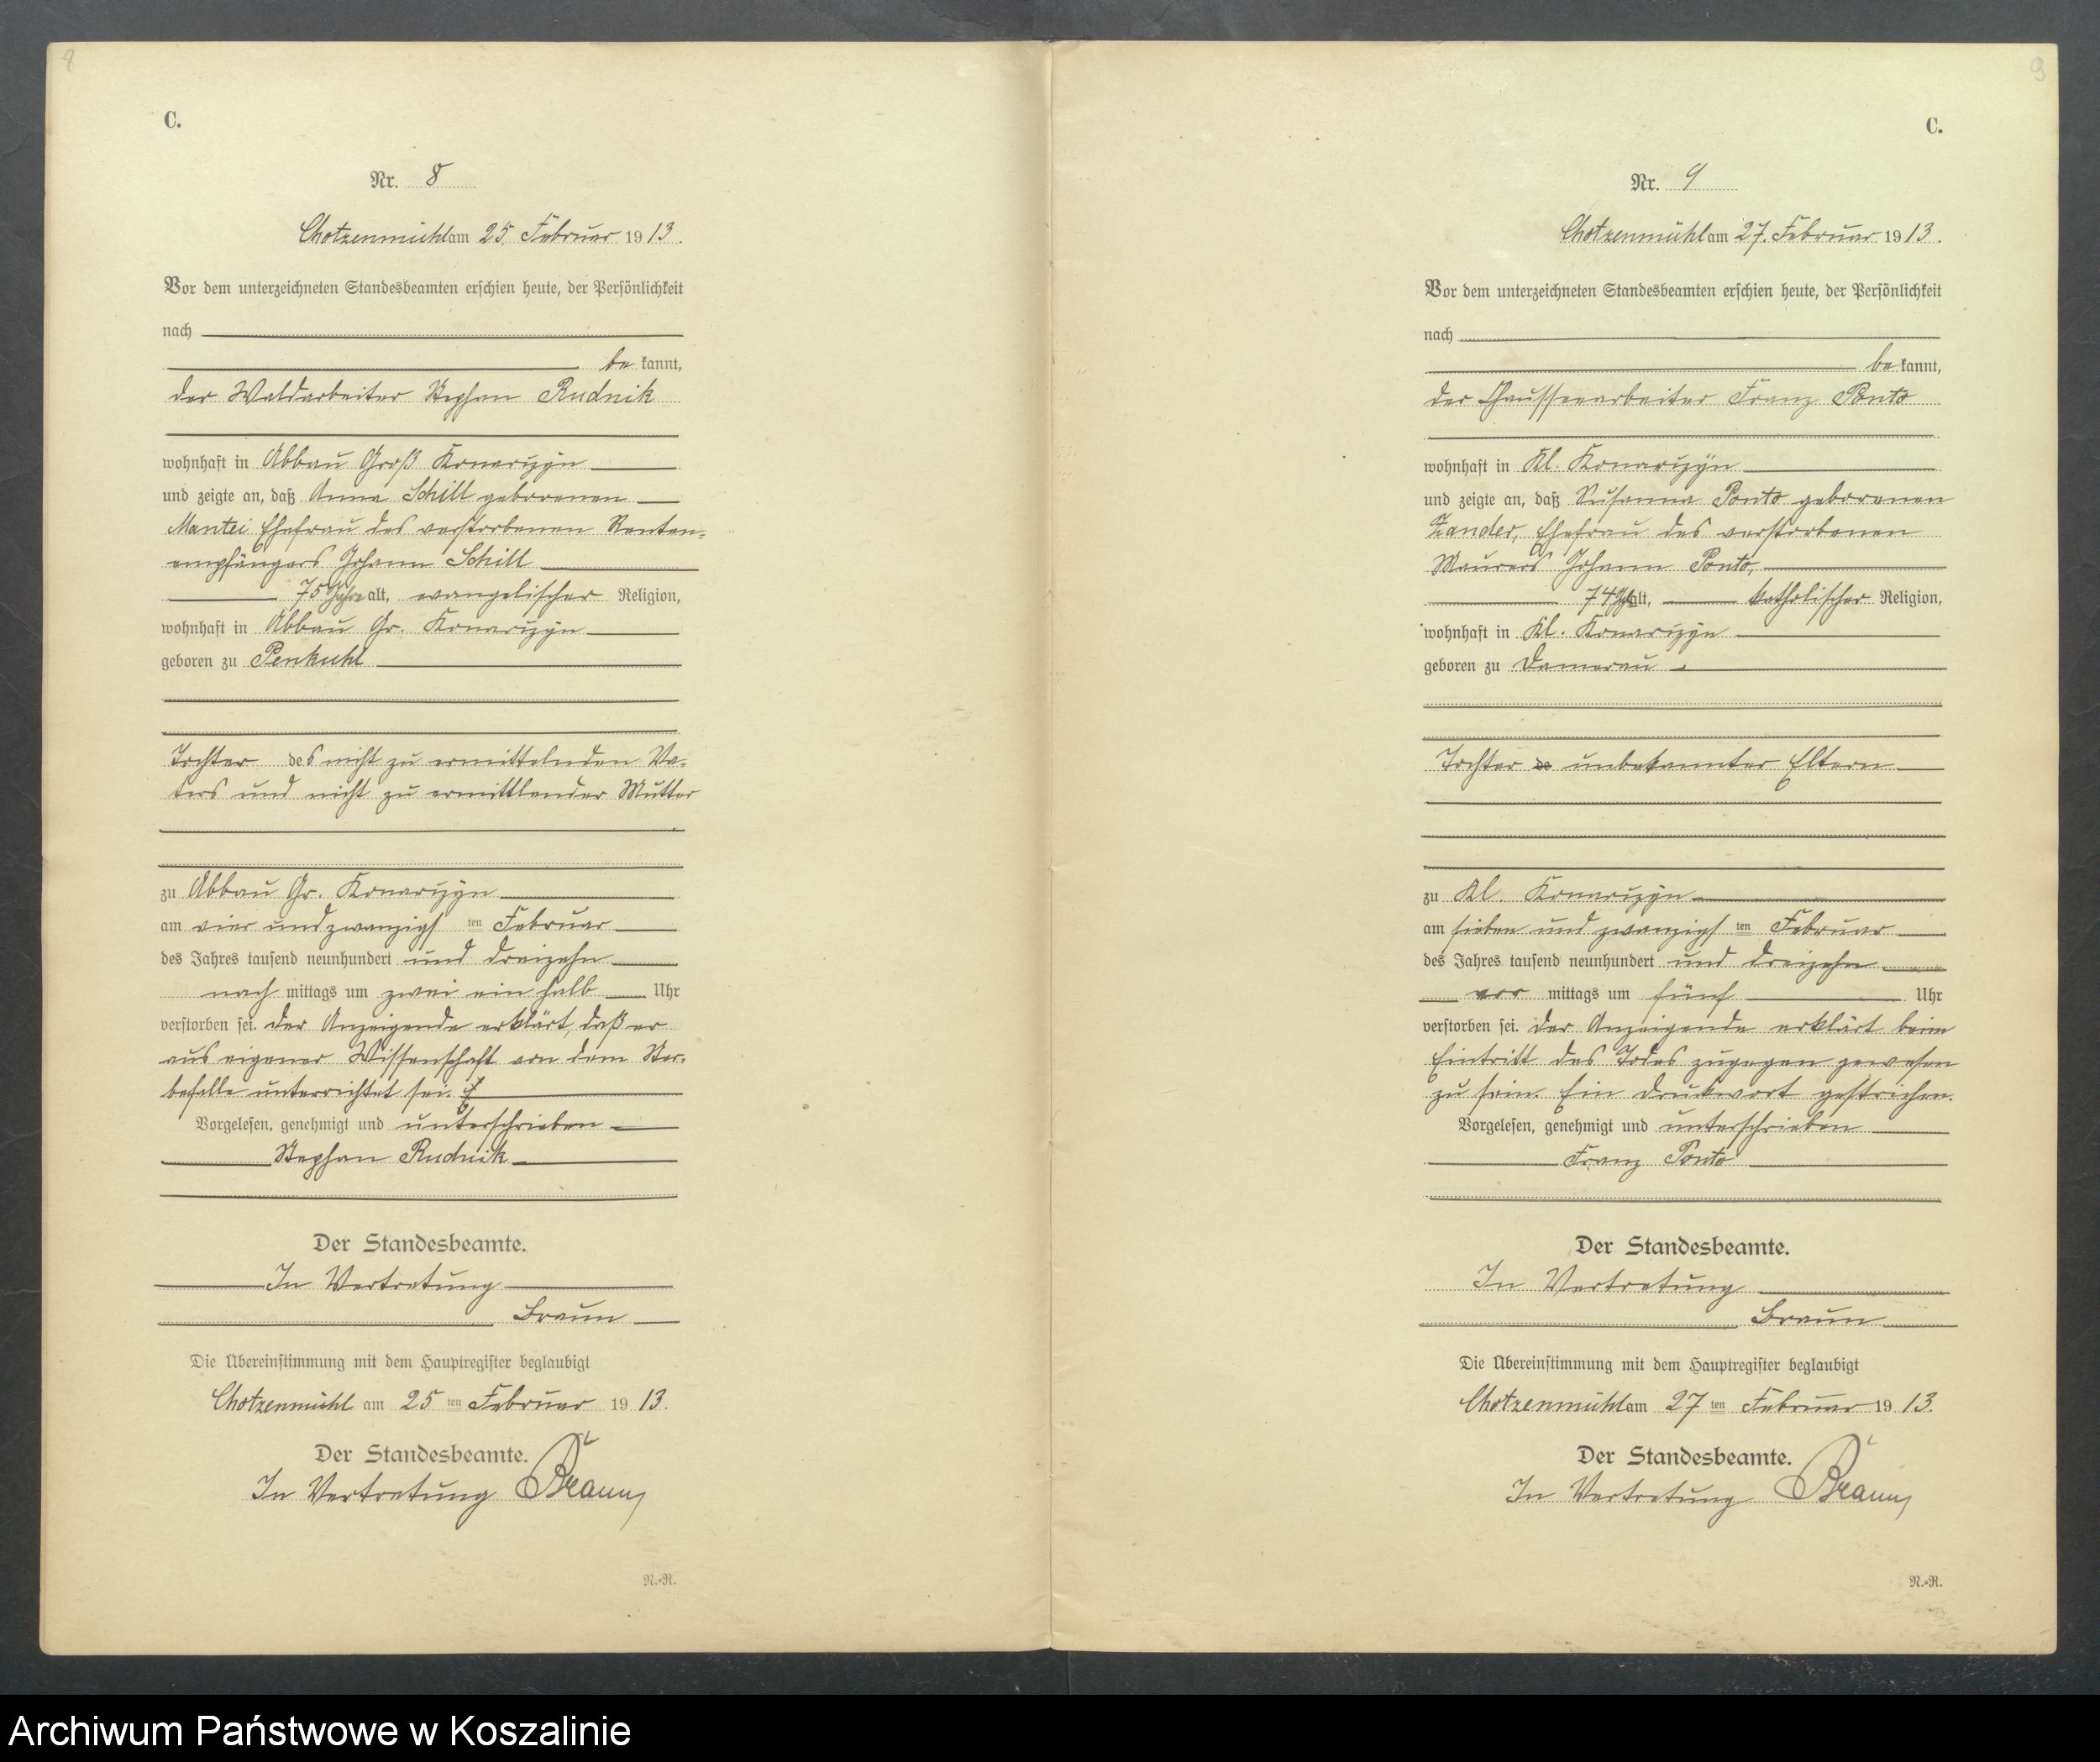 8
C.
Nr. 8
Chotzenmühl am 25. Februar 1913.
Vor dem unterzeichneten Standesbeamten erschien heute, der Persönlichkeit
nach
be kannt,
der Waldarbeiter Stephan Rudnik
wohnhaft in Abbau Groß Konarzyn
und zeigte an, daß Anna Schill geborenen
Mantei Ehefrau des verstorbenen Renten-
empfängers Johann Schill
75 Jahre alt, evangelischer Religion,
wohnhaft in Abbau Gr. Konarzyn
geboren zu Penkuhl
Tochter des nicht zu ermittelnden Va-
ters und nicht zu ermittlender Mutter
zu Abbau Gr. Konarzyn
am vier und zwanzigsten Februar
des Jahres tausend neunhundert und dreizehn
nach mittags um zwei ein halb Uhr
verstorben sei. Der Anzeigende erklärt, daß er
aus eigener Wissenschaft von dem Ster-
befalle unterrichtet sei.
Vorgelesen, genehmigt und unterschrieben
Stephan Rudnik
Der Standesbeamte.
In Vertretung
Braun
Die Übereinstimmung mit dem Hauptregister beglaubigt
Chotzenmühl am 25 ten Februar 1913.
Der Standesbeamte.
In Vertretung Braun
R.-R.
9
C.
Nr. 9
Chotzenmühl am 27. Februar 1913.
Vor dem unterzeichneten Standesbeamten erschien heute, der Persönlichkeit
nach
be kannt,
der Chausseearbeiter Franz Ponto
wohnhaft in Kl. Konarzyn
und zeigte an, daß Susanna Ponto geborenen
Zander, Ehefrau des verstorbenen
Maurers Johann Ponto,
74 Jahre alt, katholischer Religion,
wohnhaft in Kl. Konarzyn
geboren zu Damerau
Tochter de unbekannter Eltern
zu Kl. Konarzyn
am sieben und zwanzigsten Februar
des Jahres tausend neunhundert und dreizehn
vor mittags um fünf Uhr
verstorben sei. Der Anzeigende erklärt beim
Eintritt des Todes zugegen gewesen
zu sein. Ein Druckwort gestrichen.
Vorgelesen, genehmigt und unterschrieben
Franz Ponto
Der Standesbeamte.
In Vertretung
Braun
Die Übereinstimmung mit dem Hauptregister beglaubigt
Chotzenmühl am 27 ten Februar 1913.
Der Standesbeamte.
In Vertretung Braun
R.-R.
Archiwum Państwowe w Koszalinie